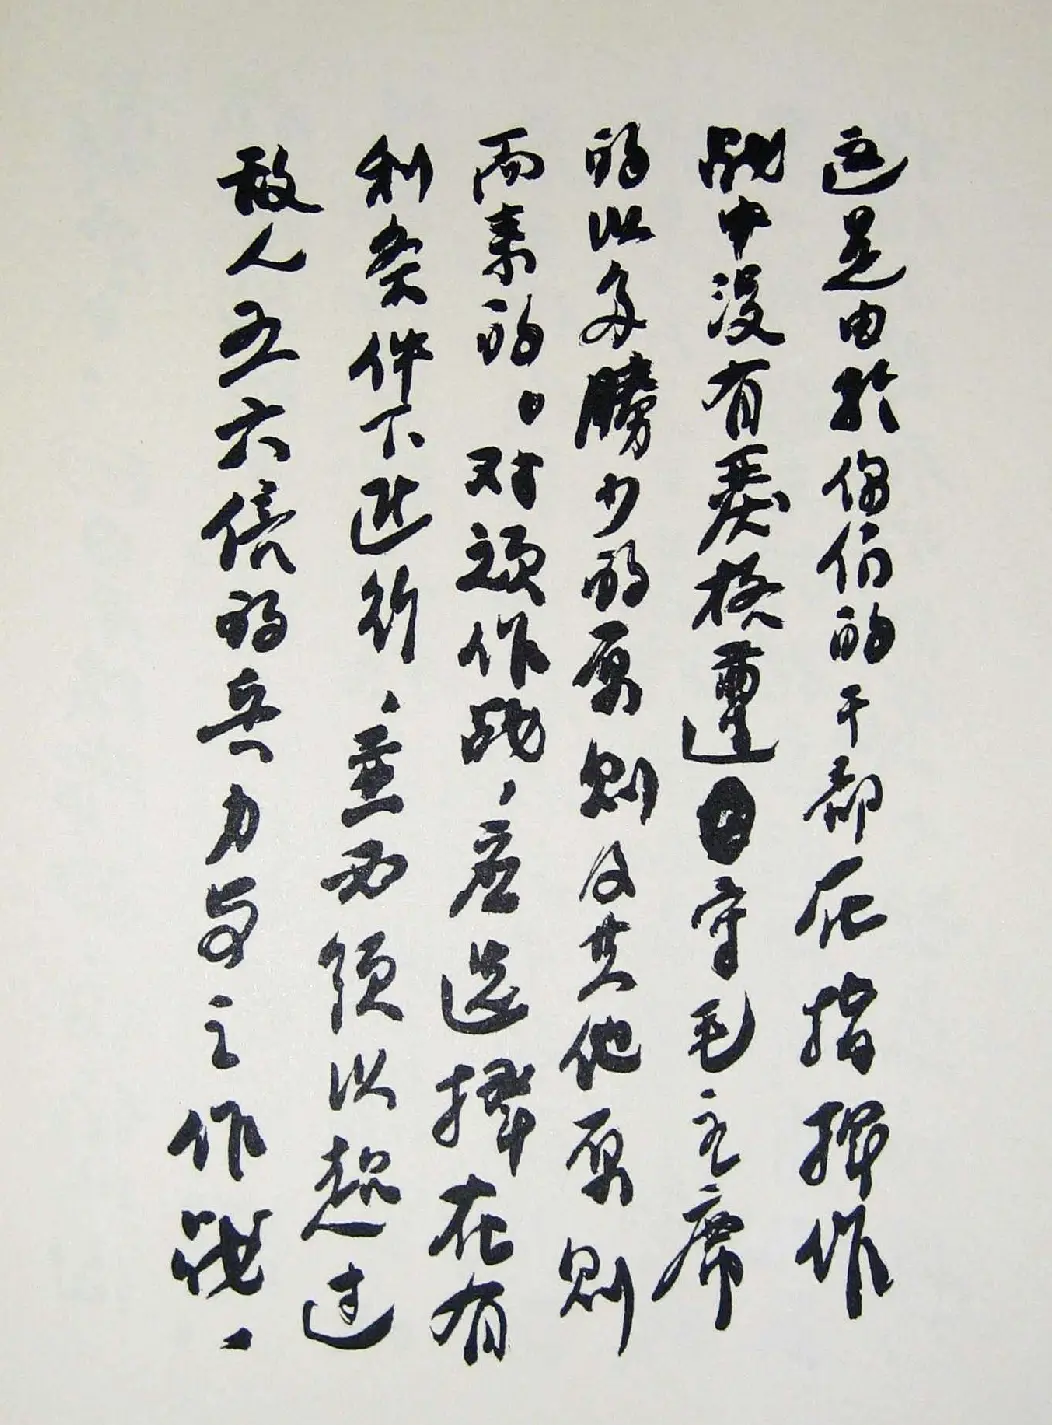 这是由於你们的干部在指挥作
战中没有严格遵守毛主席
的以多勝少的原则及其他原则
而来的。对顽作战，应选择在有
利条件下进行，並必须以超过
敌人五六倍的兵力与之作战，